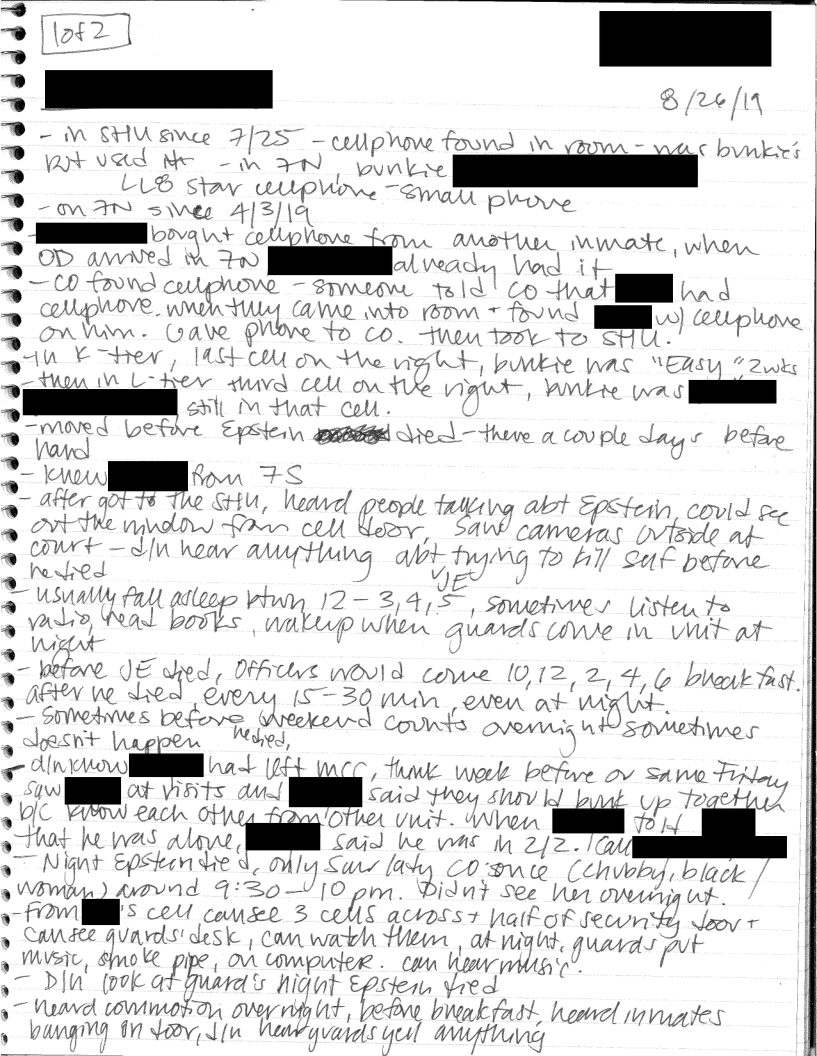 1 of 2
8/26/19
- in SHU since 7/25 - cellphone found in room - was bunkie's
but used it - in 7N, bunkie
LL8 star cellphone - small phone
- on 7N since 4/3/19
- bought cellphone from another inmate, when
OD arrived in 7N already had it
- CO found cellphone - someone told CO that had
cellphone. when they came into room + found w/ cellphone
on him. Gave phone to CO. then took to SHU.
- in K-tier, last cell on the right, bunkie was "Easy", 2wks
- then in L-tier third cell on the right, bunkie was
still in that cell.
- moved before Epstein died - there a couple days before
hand
- knew from 7S
- after got to the SHU, heard people talking abt Epstein, could see
out the window from cell door, saw cameras outside at
court - d/n hear anything abt JE trying to kill self before
he died
- usually fall asleep btwn 12 - 3, 4, 5, sometimes listen to
radio, read books, wakeup when guards come in unit at
night
- before JE died, officers would come 10, 12, 2, 4, 6 breakfast.
after he died, every 15-30 min, even at night.
- sometimes before he died, weekend counts overnight sometimes
doesn't happen
- d/n know had left MCC, think week before or same Friday
saw at visits and said they should bunk up together
b/c know each other from other unit. When told
that he was alone, said he was in 212. (call
- Night Epstein died, only saw lady CO once (chubby, black
woman) around 9:30 - 10 pm. Didn't see her overnight.
- From 's cell can see 3 cells across + half of security door +
can see guards' desk, can watch them, at night, guards put
music, smoke pipe, on computer. can hear music.
- D/n look at guard's night Epstein died
- heard commotion overnight, before breakfast, heard inmates
banging on door, d/n hear guards yell anything